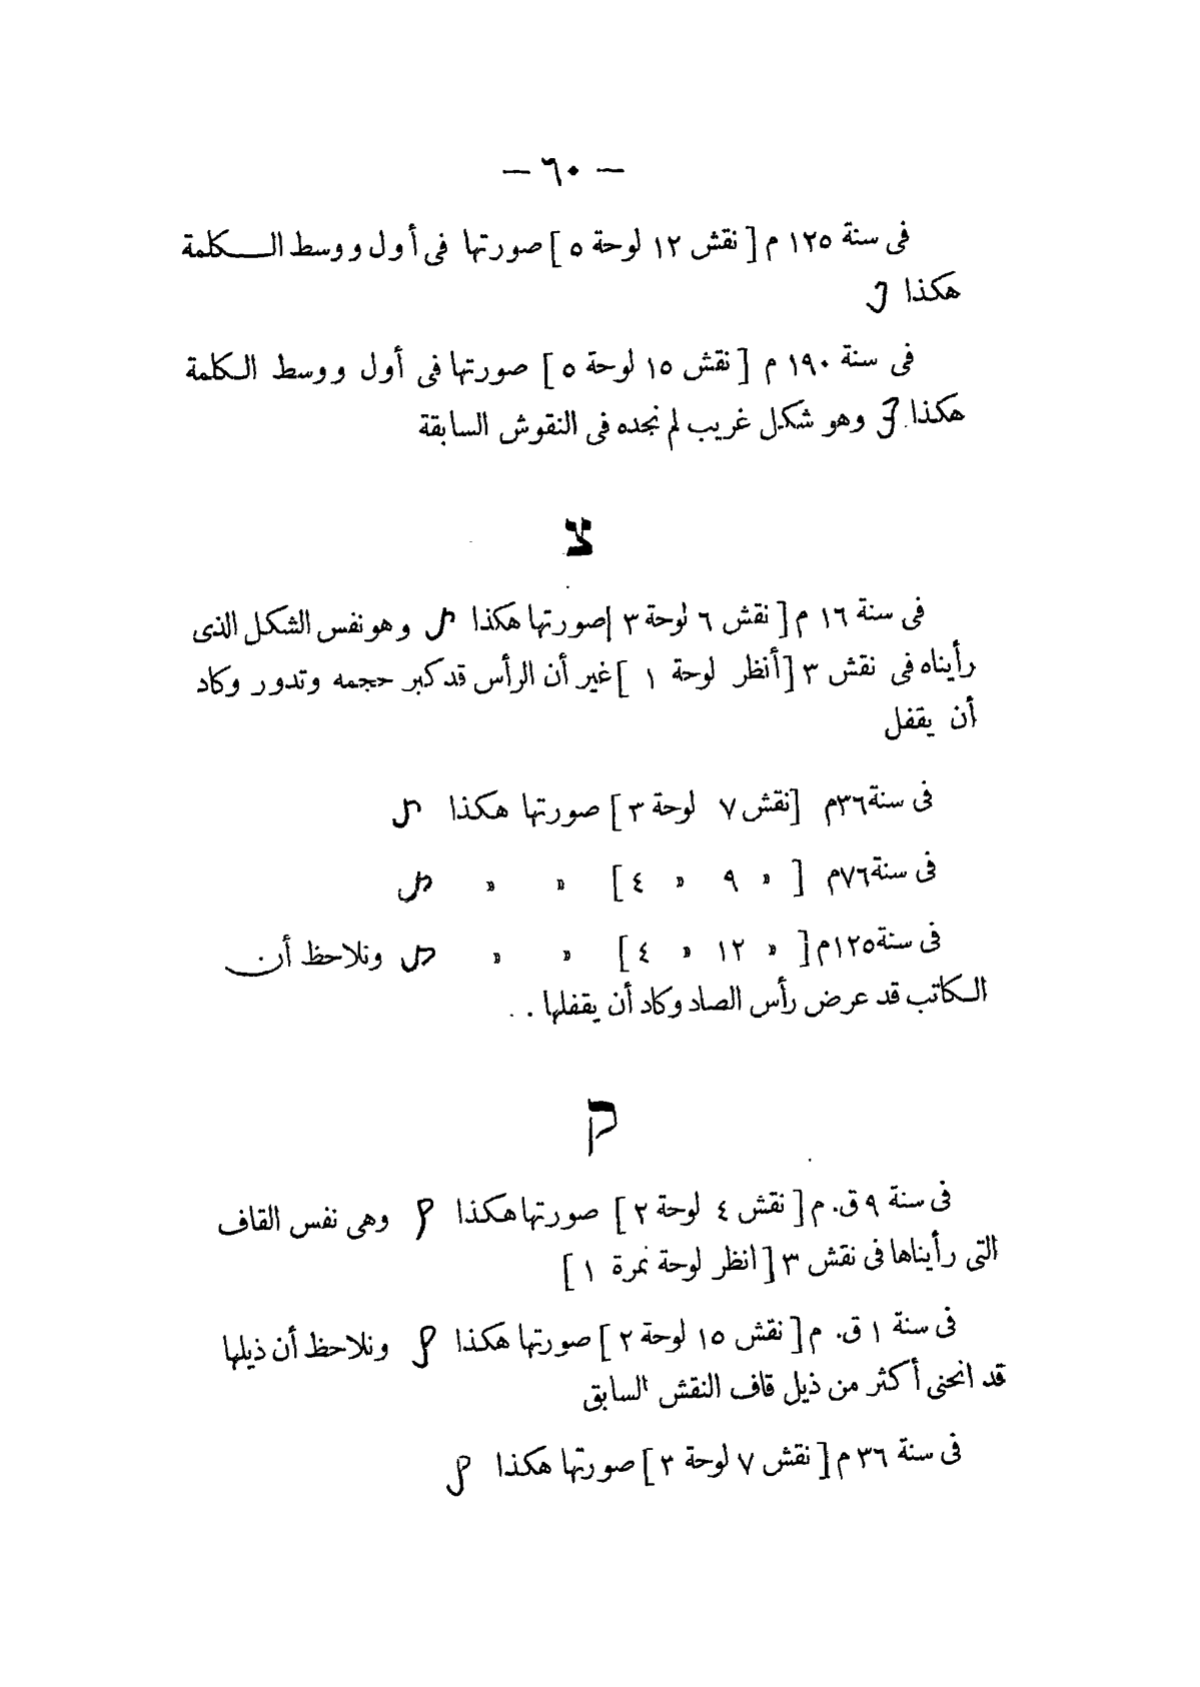 — ٦٠ —
فى سنة ١٢٥ م [ نقش ١٢ لوحة ٥ ] صورتها فى أول ووسط الـكلمة
هكذا
فى سنة ١٩٠ م [ نقش ١٥ لوحة ٥ ] صورتها فى أول ووسط الـكلمة
هكذا وهو شكل غريب لم نجده فى النقوش السابقة
צ
فى سنة ١٦ م [ نقش ٦ لوحة ٣ ] صورتها هكذا وهو نفس الشكل الذى
رأيناه فى نقش ٣ [ أنظر لوحة ١ ] غير أن الرأس قد كبر حجمه وتدور وكاد
أن يقفل
فى سنة ٣٦م [نقش ٧ لوحة ٣ ] صورتها هكذا
فى سنة ٧٦م [ » ٩ » ٤ ] » »
فى سنة ١٢٥م [ » ١٢ » ٤ ] » » ونلاحظ أن
الـكاتب قد عرض رأس الصاد وكاد أن يقفلها . .
ק
فى سنة ٩ ق. م [ نقش ٤ لوحة ٢ ] صورتها هكذا وهى نفس القاف
التى رأيناها فى نقش ٣ [ انظر لوحة نمرة ١ ]
فى سنة ١ ق. م [ نقش ١٥ لوحة ٢ ] صورتها هكذا ونلاحظ أن ذيلها
قد انحنى أكثر من ذيل قاف النقش السابق
فى سنة ٣٦ م [ نقش ٧ لوحة ٣ ] صورتها هكذا